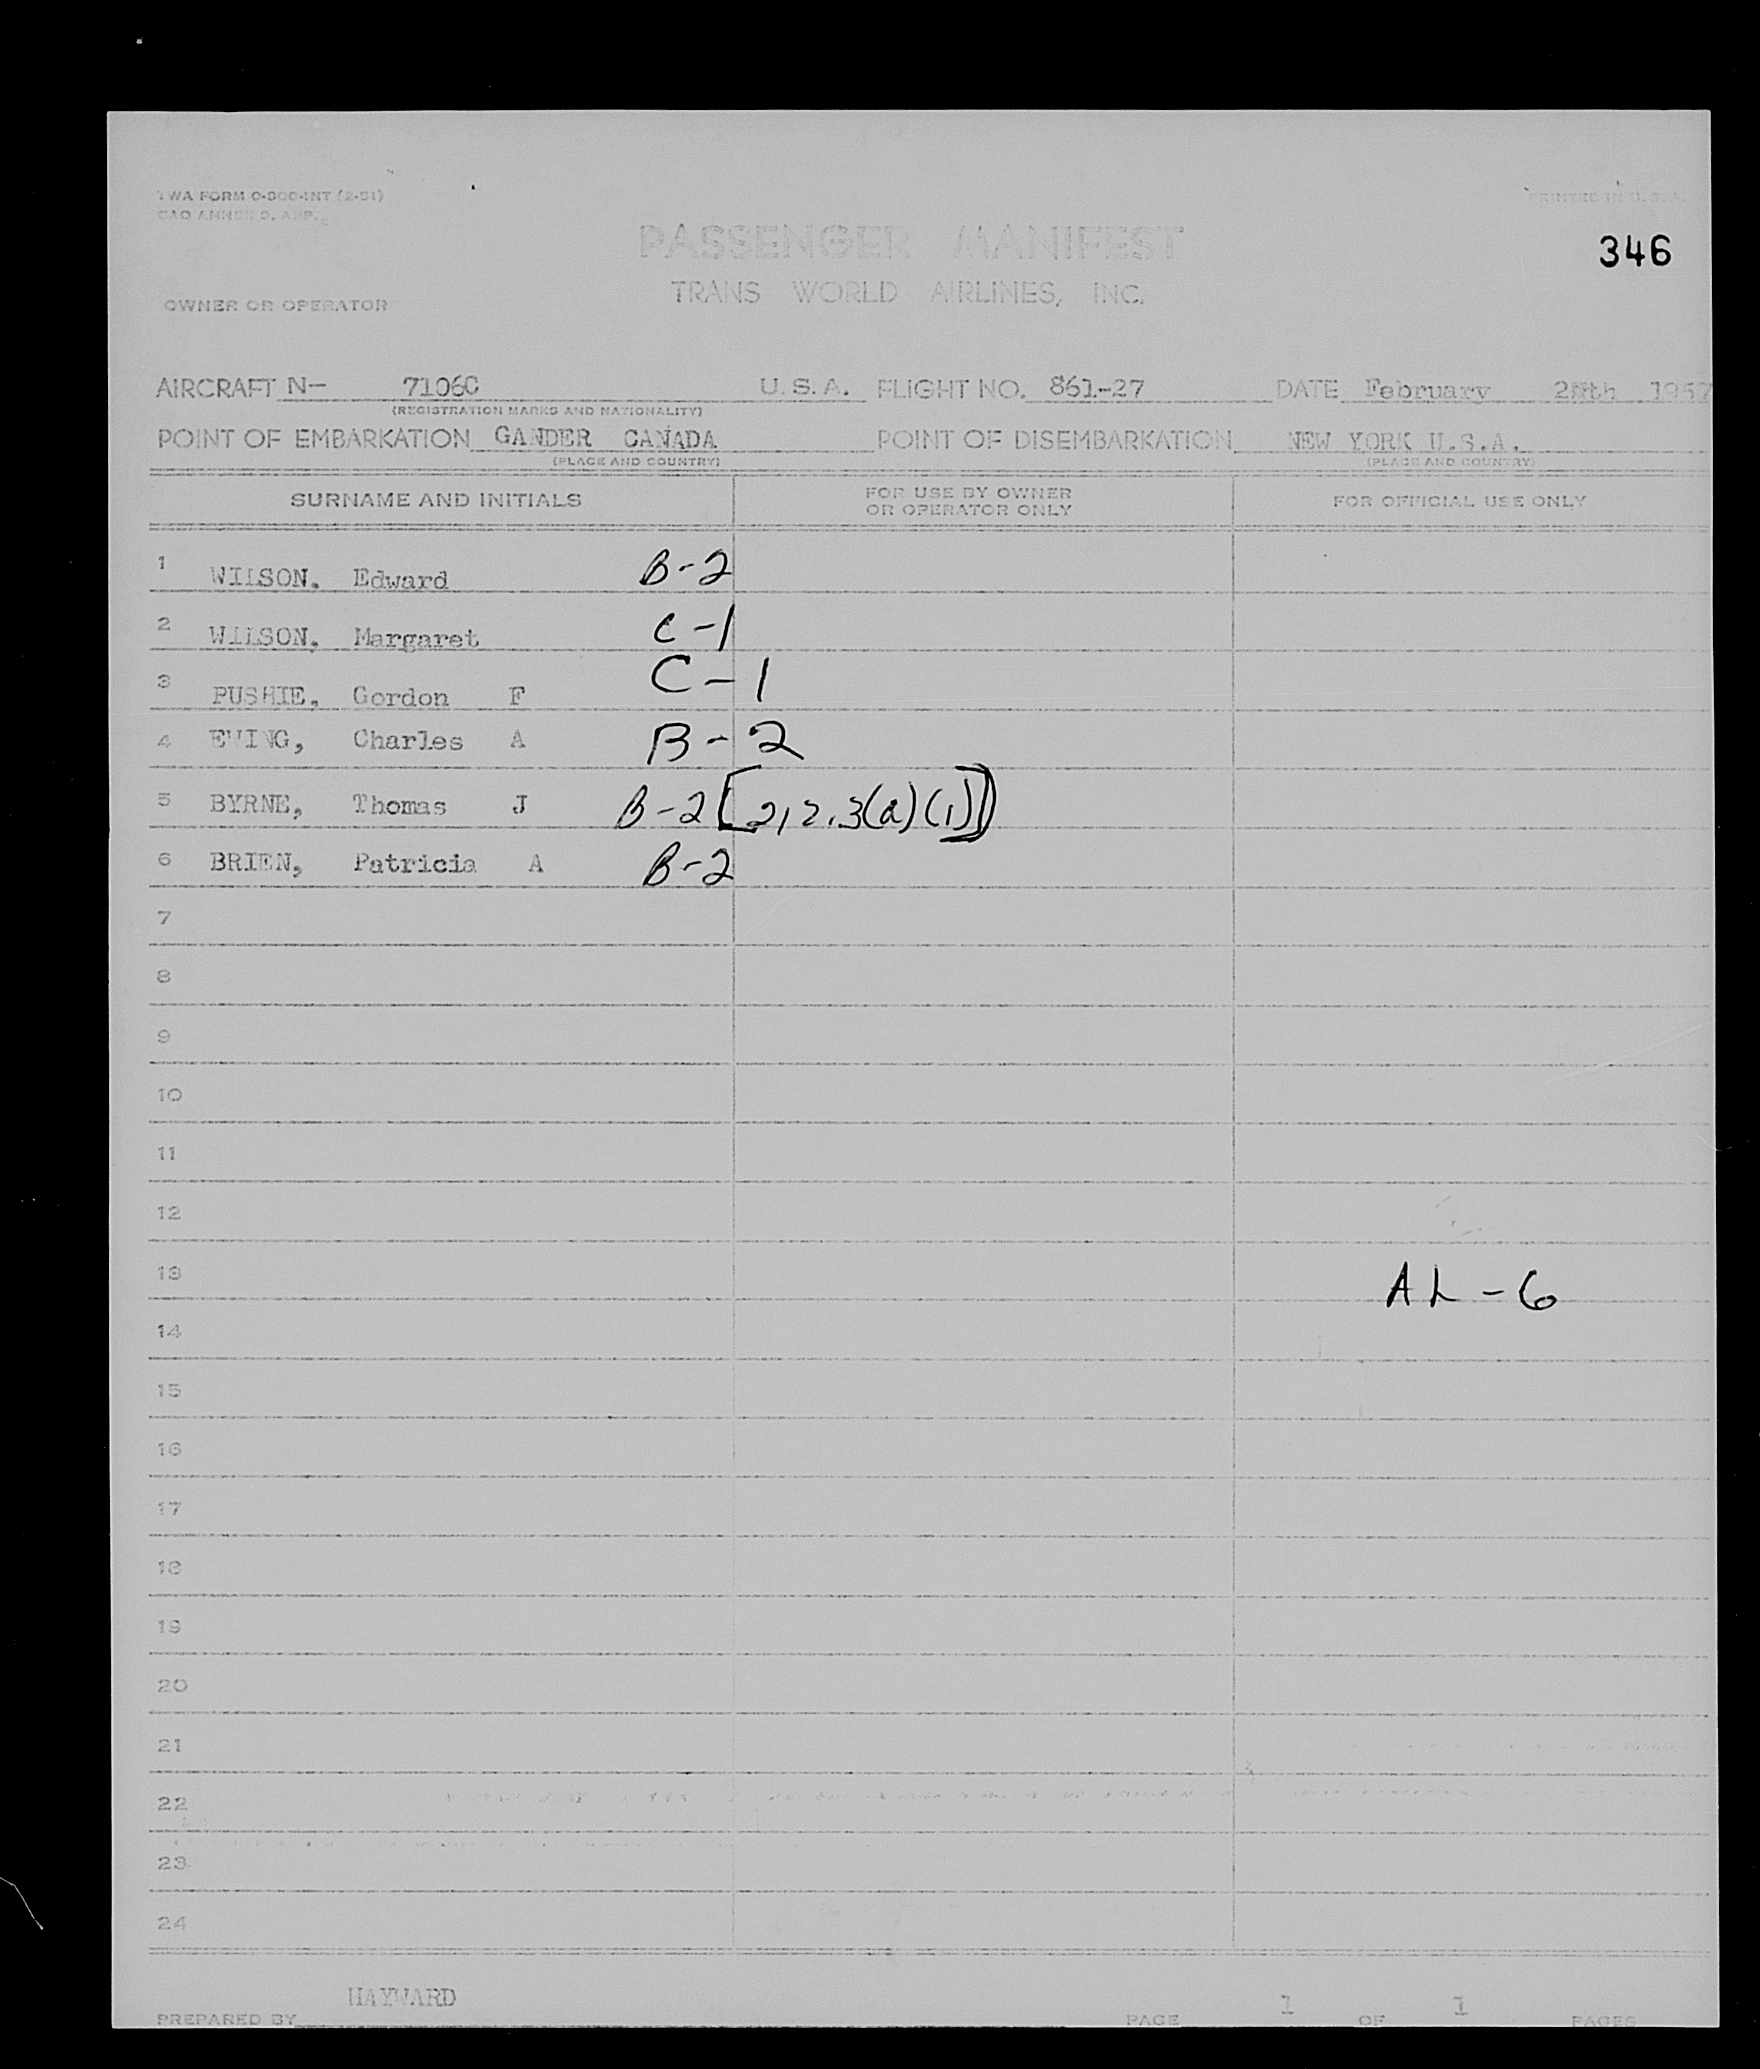 TWA FORM O-300-INT (2-51)
PRINTED IN U.S.A.
PASSENGER MANIFEST
346
TRANS WORLD AIRLINES, INC.
OWNER OR OPERATOR
AIRCRAFT N- 7106C U.S.A. FLIGHT NO. 861-27 DATE February 28th 1957
(REGISTRATION MARKS AND NATIONALITY)
POINT OF EMBARKATION GANDER CANADA POINT OF DISEMBARKATION NEW YORK U.S.A.
(PLACE AND COUNTRY) (PLACE AND COUNTRY)
SURNAME AND INITIALS FOR USE BY OWNER OR OPERATOR ONLY FOR OFFICIAL USE ONLY
1 WILSON. Edward B-2
2 WILSON, Margaret C-1
3 PUSHIE, Gordon F C-1
4 EWING, Charles A B-2
5 BYRNE, Thomas J B-2 [212.3(a)(1)]
6 BRIEN, Patricia A B-2
7
8
9
10
11
12
13 AL-6
14
15
16
17
18
19
20
21
22
23
24
PREPARED BY HAYWARD PAGE 1 OF 1 PAGES